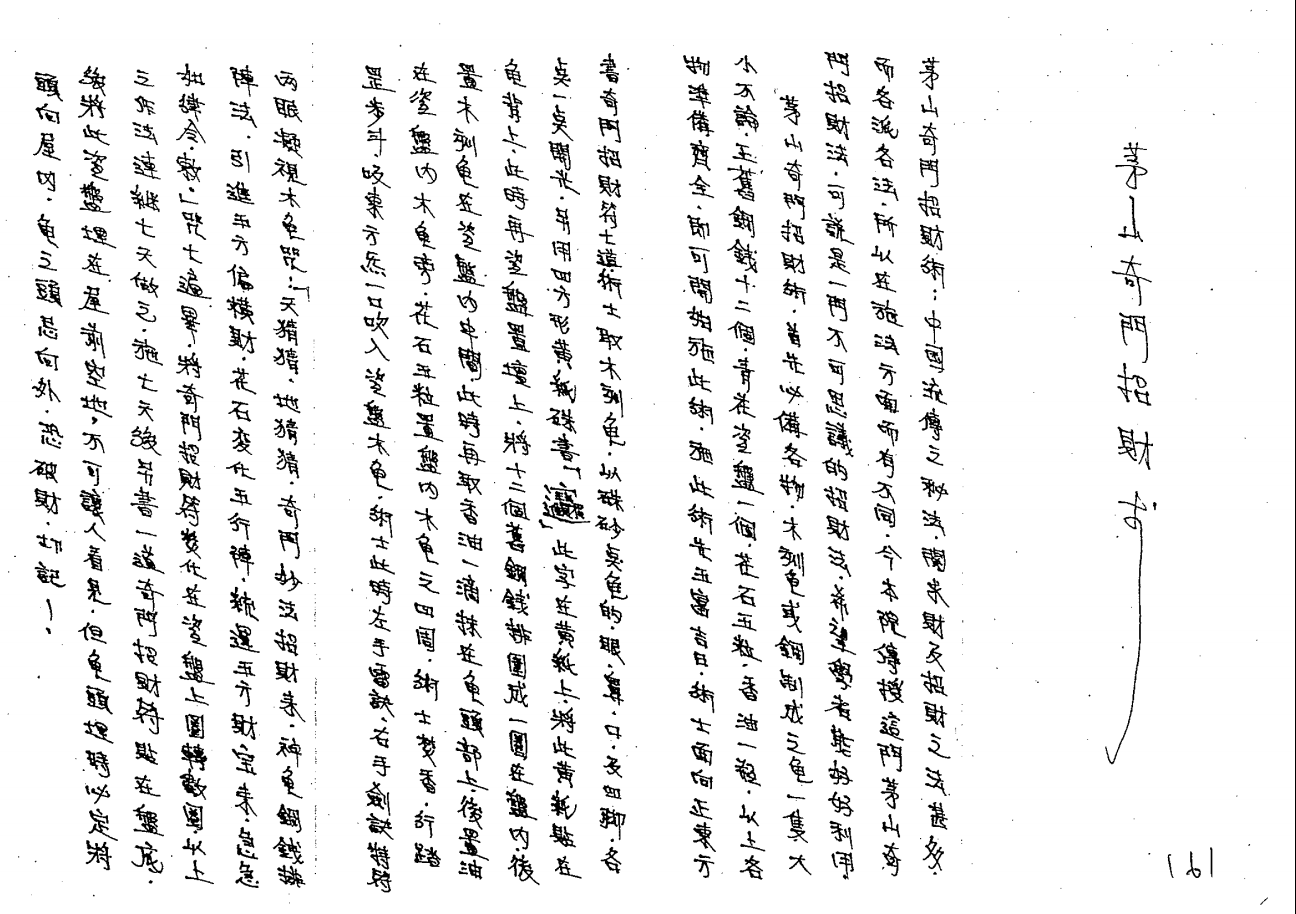 茅山奇門招財術
茅山奇門招財術：中国流傳之秘法，關来財及招財之法甚多，
而各派各法，所以在施法方面而有不同，今本院傳授這門茅山奇
門招財法，可說是一門不可思議的招財法，希望學者能好好利用，
茅山奇門招財術，首先必備各物，木刻龜或銅制成之龜一隻大
小不論，五舊銅錢十二個，青花瓷盤一個，花石五粒，香油一瓶，以上各
物準備齊全，即可開始施此術，施此術先五富吉日，術士面向正東方
書奇門招財符七道，術士取木刻龜，以硃砂点龜的，眼，鼻，口，及四脚，各
点一点開光，另用四方形黄紙硃書「」此字在黄紙上，將此黄紙貼在
龜背上，此時再瓷盤置壇上，將十二個舊銅錢排圍成一圈在盤内，後
置木刻龜在瓷盤内中間，此時再取香油一滴抹在龜頭部上，後置油
在瓷盤内木龜旁，花石五粒置盤内木龜之四周，術士焚香，行踏
罡步斗，吸東方炁一口吹入瓷盤木龜，術士此時左手雷訣，右手劍訣持符
两眼凝視木龜咒：「天猜猜，地猜猜，奇門妙法招財来，神龜銅錢排
陣法，引進五方偏横財，花石変化五行陣，統運五方財宝来，急急
如律令，敕」咒七遍畢，將奇門招財符焚化在瓷盤上圍轉數圈，以上
之作法連継七天做之，施七天後另書一道奇門招財符貼在盤底，
後將此瓷盤埋在屋前空地，不可讓人看見，但龜頭埋時必定將
頭向屋内，龜之頭忌向外，恐破財，切記！
161